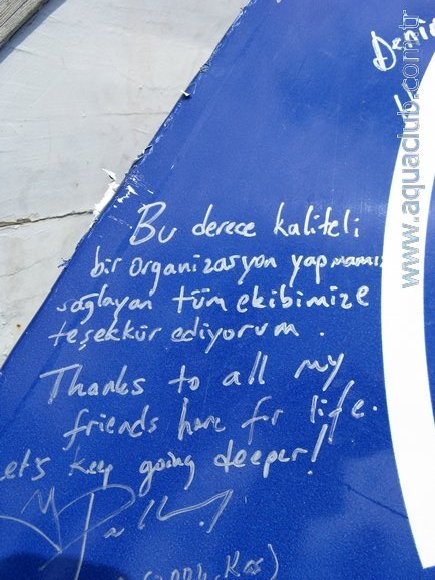 www.aquaclub.com.tr
Bu derece kaliteli
bir organizasyon yapmamızı
sağlayan tüm ekibimize
teşekkür ediyorum.
Thanks to all my
friends here for life.
Let's keep going deeper!